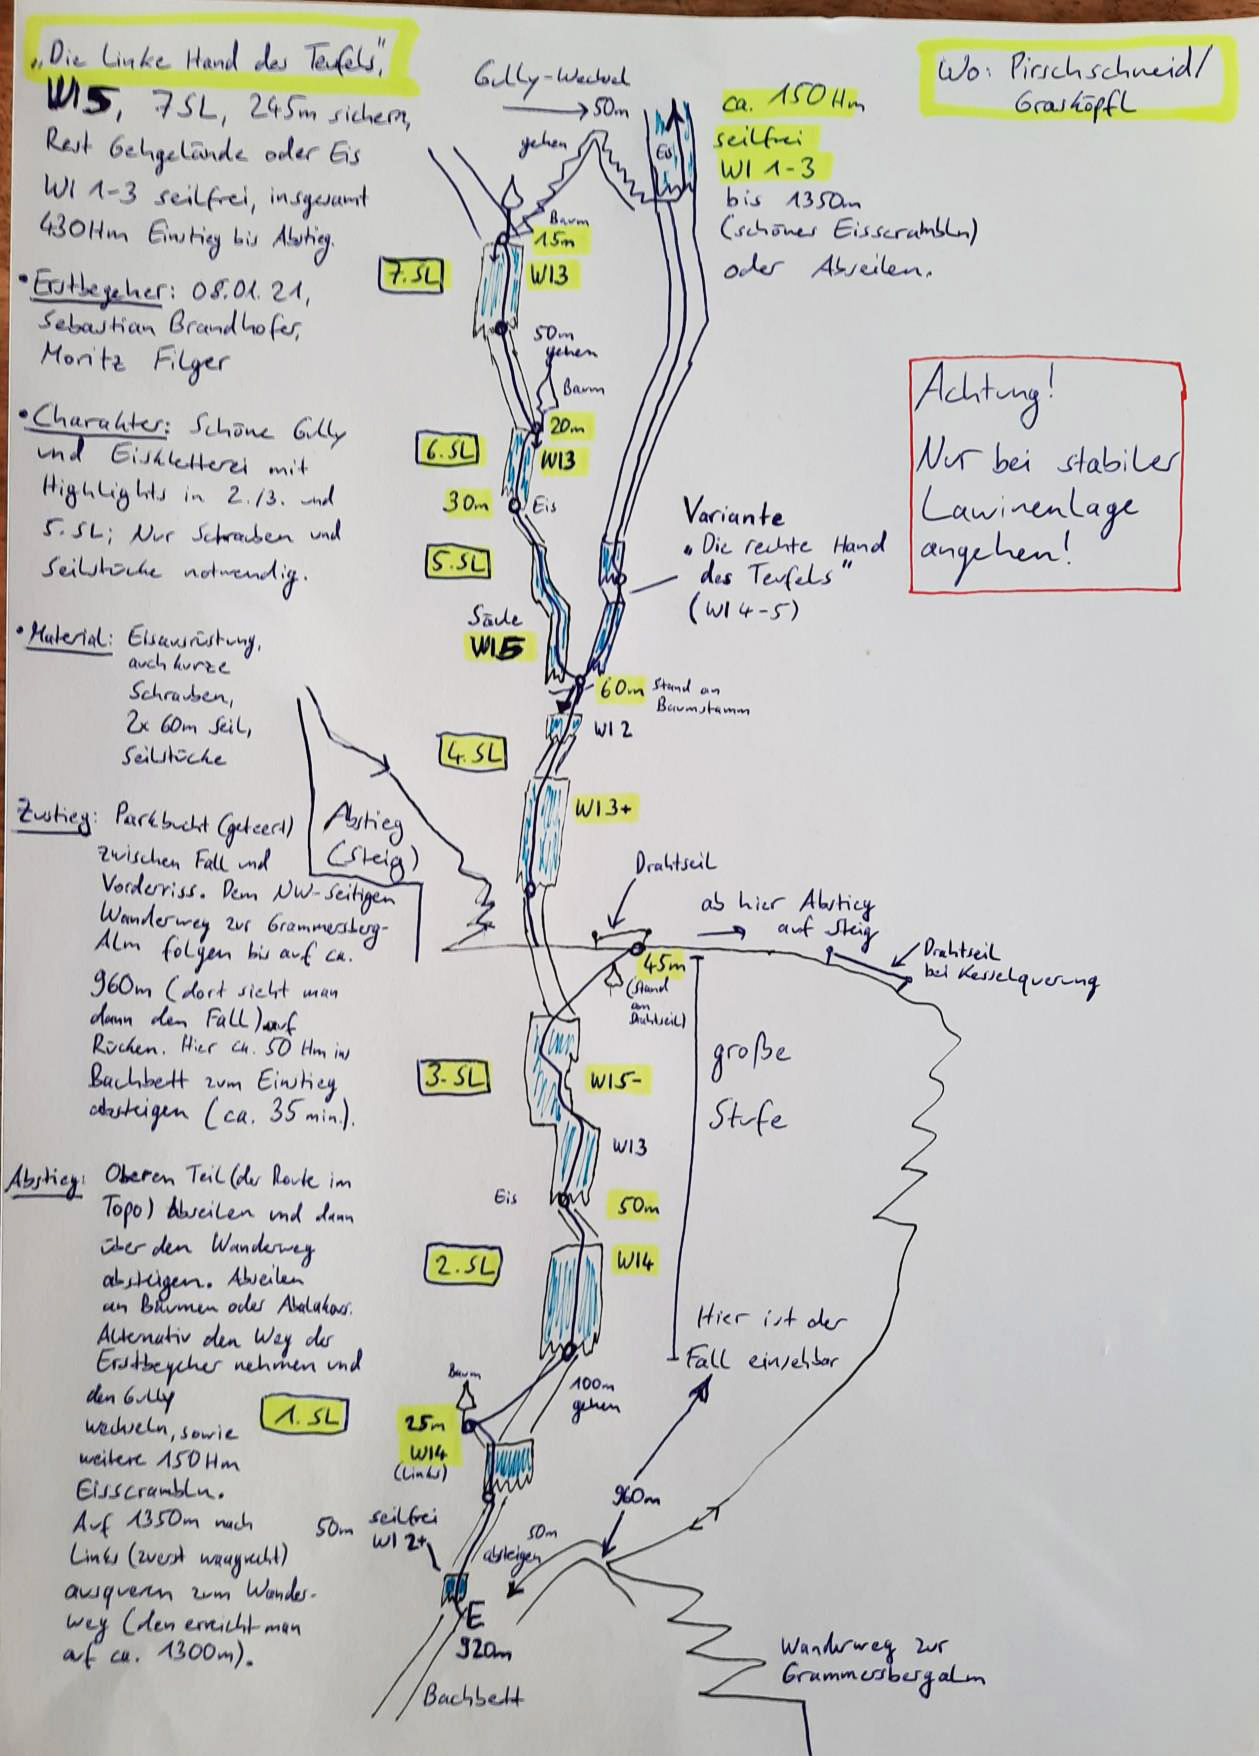 „Die Linke Hand des Teufels",
WI5, 7SL, 245m sichern,
Rest Gehgelände oder Eis
WI 1-3 seilfrei, insgesamt
430Hm Einstieg bis Abstieg.
• Erstbegeher: 08.01.21,
Sebastian Brandhofer,
Moritz Filger
• Charakter: Schöne Gully
und Eiskletterei mit
Highlights in 2./3. und
5. SL; Nur Schrauben und
Seilstücke notwendig.
• Material: Eisausrüstung,
auch kurze
Schrauben,
2x 60m Seil,
Seilstücke
Zustieg: Parkbucht (geteert)
zwischen Fall und
Vorderriss. Dem NW-seitigen
Wanderweg zur Grammersberg-
Alm folgen bis auf ca.
960m (dort sieht man
dann den Fall) auf
Rücken. Hier ca. 50 Hm ins
Bachbett zum Einstieg
absteigen (ca. 35 min.).
Abstieg: Oberen Teil (der Route im
Topo) Abseilen und dann
über den Wanderweg
absteigen. Abseilen
an Bäumen oder Abalakovs.
Alternativ den Weg der
Erstbegeher nehmen und
den Gully
wechseln, sowie
weitere 150Hm
Eisscrambln.
Auf 1350m nach
Links (zuerst waagrecht)
ausqueren zum Wander-
weg (den erreicht man
auf ca. 1300m).
Gully-Wechsel
50m
gehen
Eis
ca. 150Hm
seilfrei
WI 1-3
bis 1350m
(schönes Eisscrambln)
oder Abseilen.
Wo: Pirschschneid/
Grasköpfl
Achtung!
Nur bei stabiler
Lawinenlage
angehen!
Baum
15m
7.SL
WI3
50m
gehen
Baum
20m
6.SL
WI3
30m
Eis
5.SL
Säule
WI5
Variante
„Die rechte Hand
des Teufels"
(WI 4-5)
60m Stand an
Baumstamm
WI 2
4.SL
WI3+
Abstieg
(Steig)
Drahtseil
ab hier Abstieg
auf Steig
Drahtseil
bei Kesselquerung
45m
(Stand
am
Drahtseil)
große
Stufe
3.SL
WI5-
WI3
Eis
50m
2.SL
WI4
Hier ist der
Fall einsehbar
Baum
100m
gehen
1.SL
25m
WI4
(Links)
960m
50m
seilfrei
WI 2+
50m
absteigen
E
920m
Bachbett
Wanderweg zur
Grammersbergalm